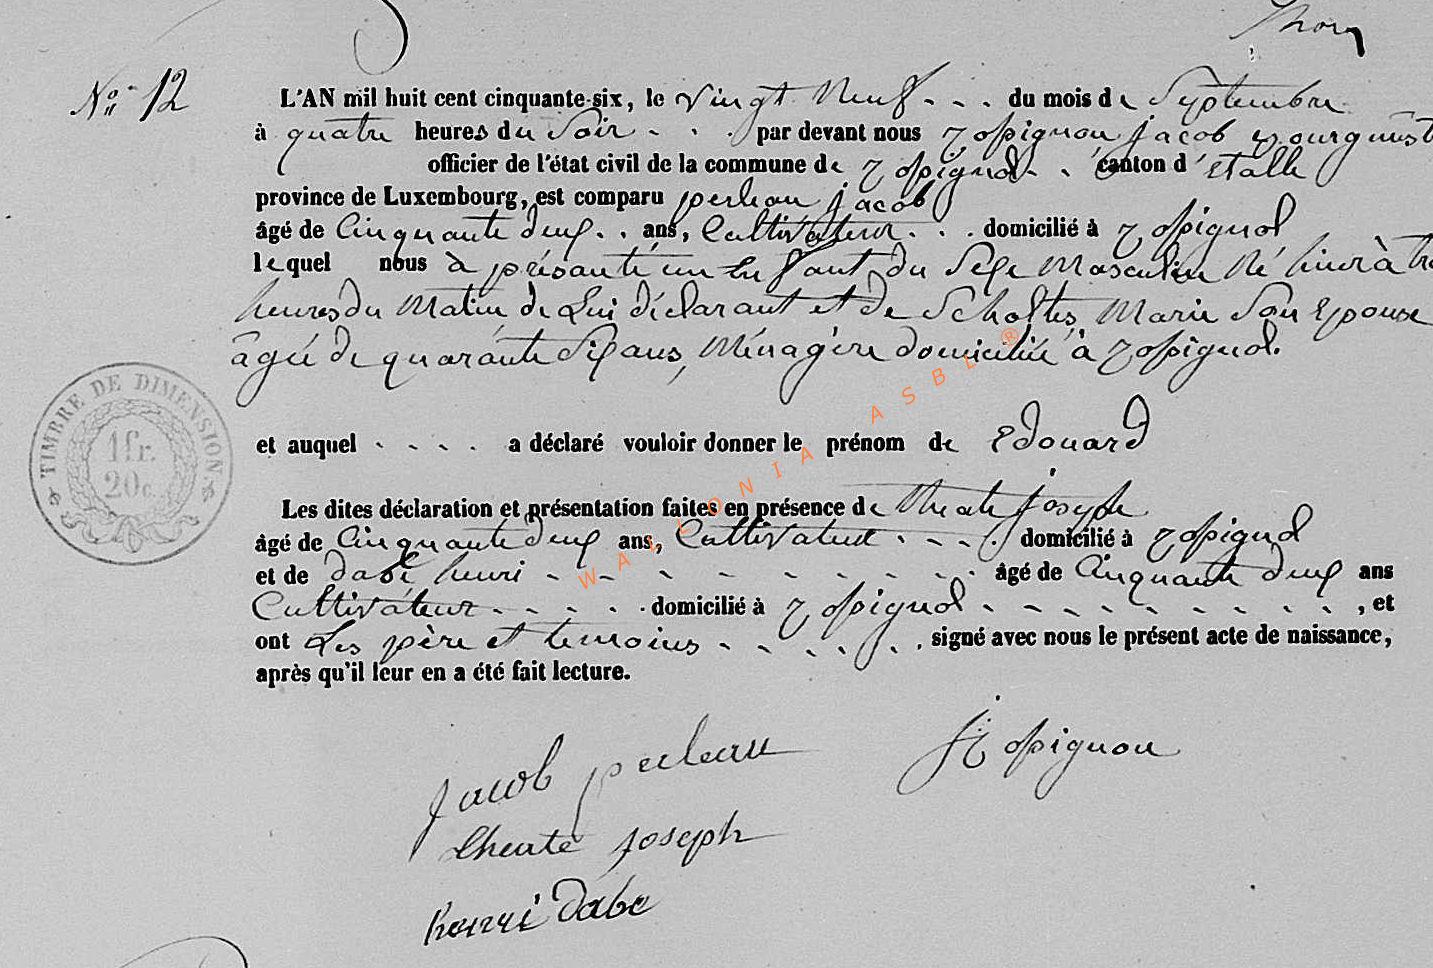 Thom
No. 12
L'AN mil huit cent cinquante-six, le vingt Neuf du mois de Septembre
à quatre heures du Soir par devant nous rossignon jacob
officier de l'état civil de la commune de rossignol canton d'étalle
province de Luxembourg, est comparu perleau jacob
âgé de Cinquante deux ans, Cultivateur domicilié à rossignol
lequel nous à présanté un Enfant du Sexe Masculin Né hier à
heures du Matin de Lui déclarant et de Scholtes, Marie Son Epouse
âgée de quarante Six ans, Ménagère domiciliée à rossignol.
et auquel a déclaré vouloir donner le prénom de Edouard
TIMBRE DE DIMENSION
1 fr.
20 c.
Les dites déclaration et présentation faites en présence de joseph
âgé de Cinquante deux ans, Cultivateur domicilié à rossignol
et de dabé henri âgé de Cinquante deux ans
Cultivateur domicilié à rossignol, et
ont Les père et temoins signé avec nous le présent acte de naissance,
après qu'il leur en a été fait lecture.
jacob perleau
J rossignon
joseph
henri dabe
WALLONIA ASBL ®